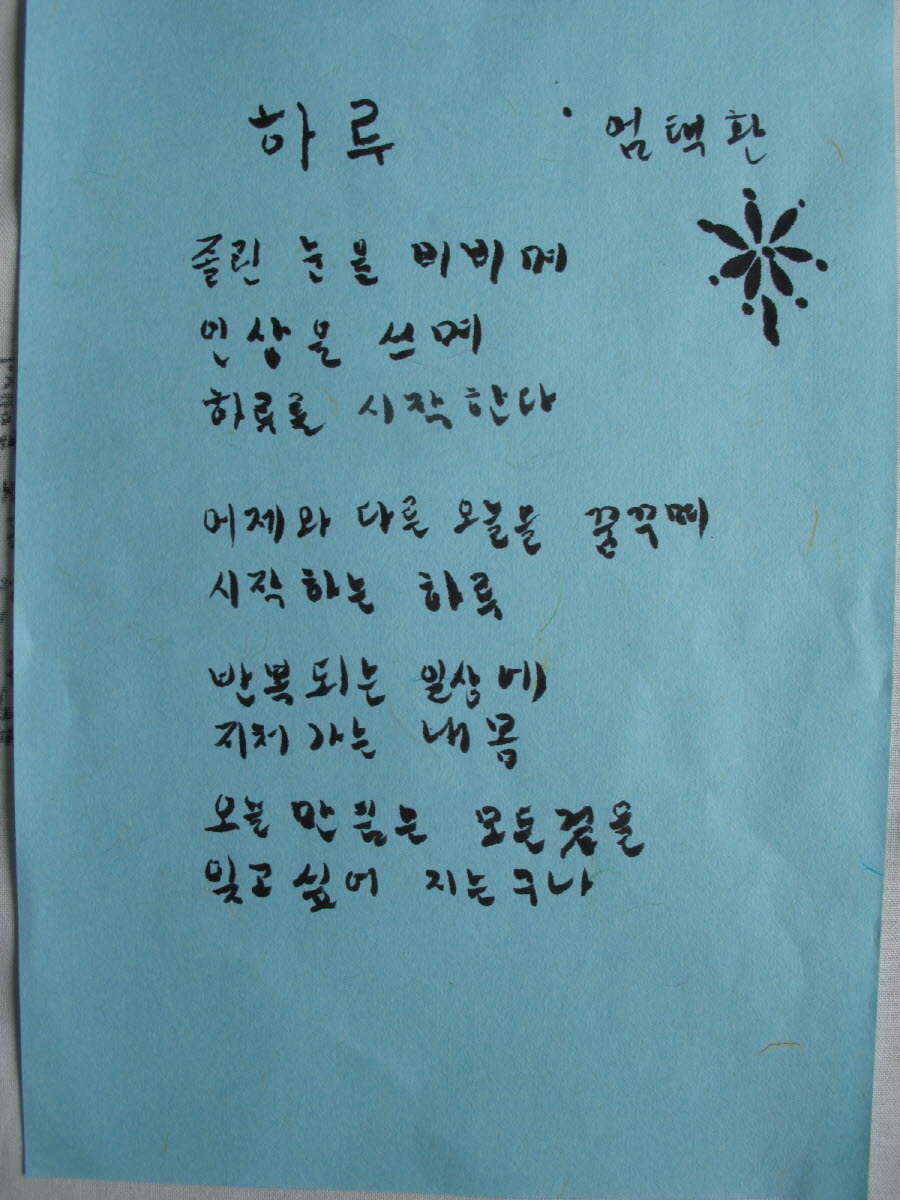 하루 엄택환
졸린 눈을 비비며
인상을 쓰며
하루를 시작한다
어제와 다른 오늘을 꿈꾸며
시작하는 하루
반복되는 일상에
지쳐가는 내몸
오늘만큼은 모든것을
잊고싶어 지는구나